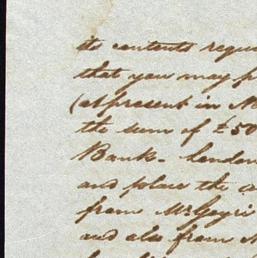 its contents reque
that you may p
(at present in N
the sum of £50
Bank - London
and place the a
from Mr Geyri
and also from